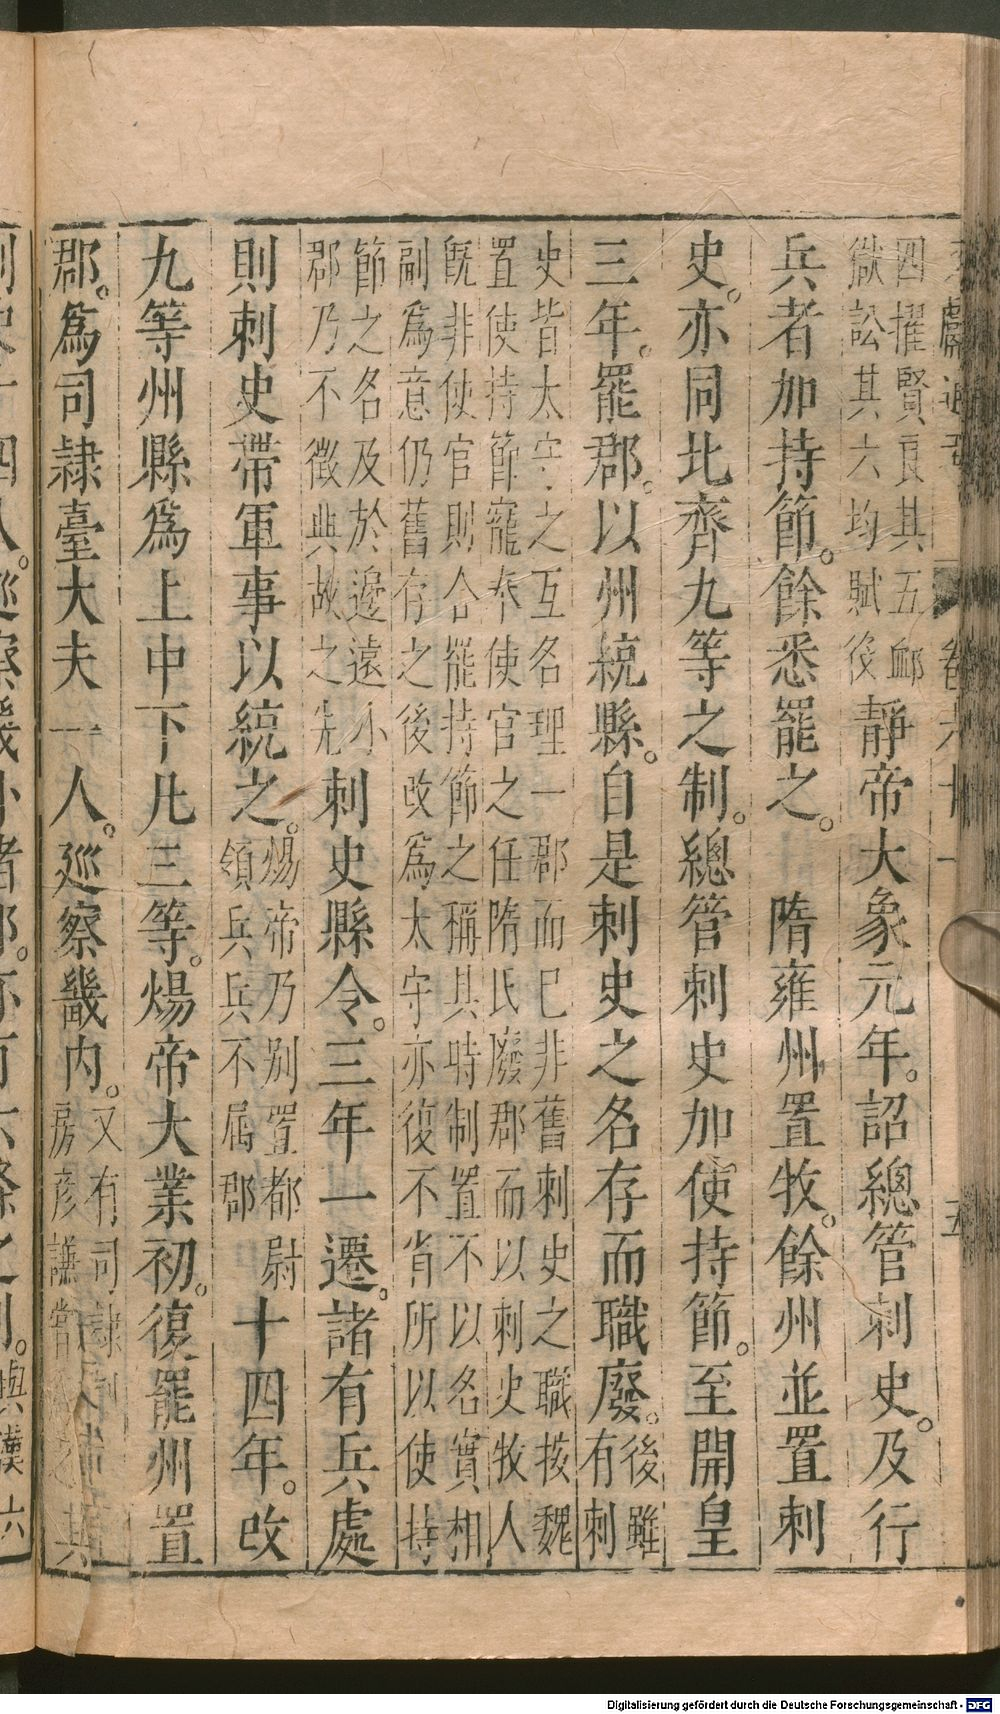 四擢賢良其五卹
獄訟其六均賦役
靜帝大象元年。詔總管刺史。及行
兵者加持節。餘悉罷之。 隋雍州置牧。餘州並置刺
史。亦同北齊九等之制。總管刺史加使持節。至開皇
三年。罷郡。以州統縣。自是刺史之名存而職廢。
後雖
有刺
史皆太守之互名理一郡而已非舊刺史之職按魏
置使持節寵奉使官之任隋氏廢郡而以刺史牧人
既非使官則合罷持節之稱其時制置不以名實相
副為意仍舊存之後改為太守亦復不省所以使持
節之名及於邊遠小
郡乃不徵典故之失
刺史縣令。三年一遷。諸有兵處
則刺史帶軍事以統之。
煬帝乃別置都尉
領兵兵不屬郡
十四年。改
九等州縣為上中下凡三等。煬帝大業初。復罷州置
郡。為司隸臺大夫一人。廵察畿內。
又有司隸
房彥謙嘗
Digitalisierung gefördert durch die Deutsche Forschungsgemeinschaft - DFG